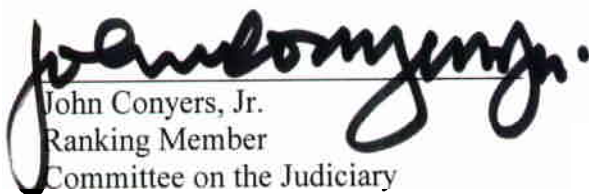 John Conyers, Jr.
John Conyers, Jr.
Ranking Member
Committee on the Judiciary